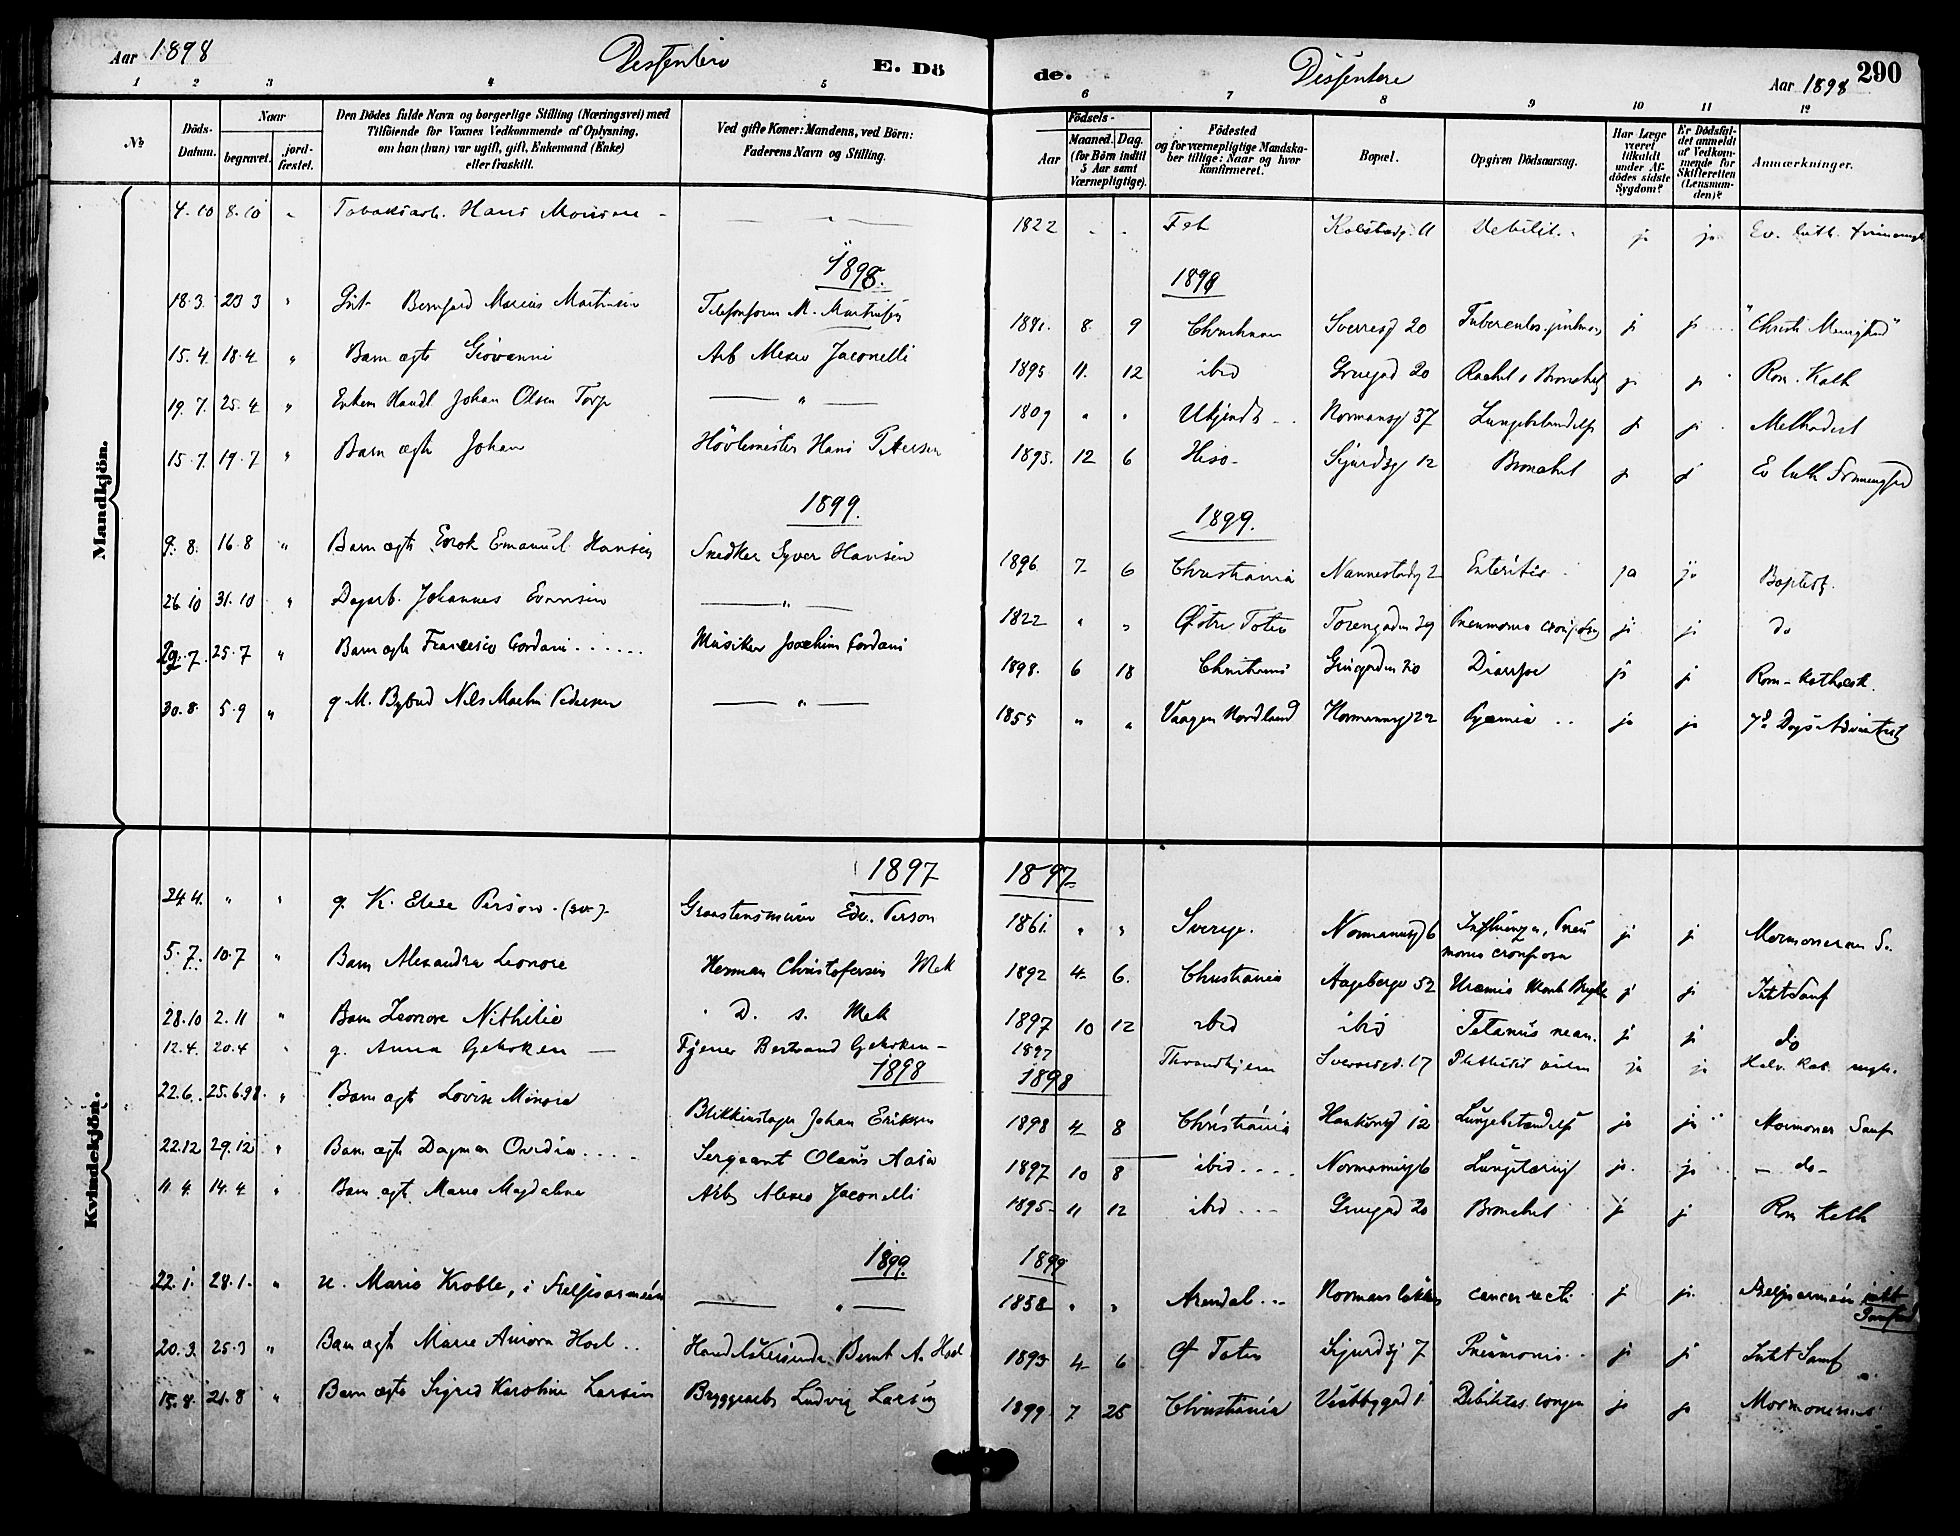 Aar 1898 Dissentere E. Dö
de. Dissentere Aar 1898 290
1 2 3 4 5 6 7 8 9 10 11 12
№ Döds-Datum. Naar begravet. jord-fæstet. Den Dödes fulde Navn og borgerlige Stilling (Næringsvei) med Tilföiende for Voxnes Vedkommende af Oplysning, om han (hun) var ugift, gift, Enkemand (Enke) eller fraskilt. Ved gifte Koner: Mandens, ved Börn: Faderens Navn og Stilling.
Födsels- Aar Maaned. Dag. (for Börn indtil 5 Aar samt Værnepligtige). Födested og for værnepligtige Mandskaber tillige: Naar og hvor konfirmeret. Bopæl. Opgiven Dödsaarsag. Har Læge været tilkaldt under Afdödes sidste Sygdom? Er Dödsfaldet anmeldt af Vedkommende for Skifteretten (Lensmanden)? Anmærkninger.
Mandkjön.
4.10 8.10 " Tobaksarb. Hans 1822 Kolstadg. 11 Debilit. ja ja Ev. luth.
1898. 1898
18.3. 23 3 " Bernhard Marius Martinsen M. Martinsen 1881. 8 9 Christiania Sverresg 20 Tubercules. pulmon j j "Christi Menighed"
15.4. 18.4 " Barn ægte Giovanni Arb Jaconelli 1895 11. 12 ibid Gruegad 20 Rachit & Bronchit j j Rom. Kath
19.7. 25.4 " Enkem Handl Johan Olsen Torp — " — 1809 " " Ukjendt Normansg 37 Lungebetændelse j j Methodist
15.7. 19.7 " Barn ægte Johan Hövlemester Hans Pettersen 1895. 12 6 Sigurdsg 12 Bronchit j j Ev luth
1899. 1899.
9.8. 16.8 " Barn ægte Enok Emanuel Hansen Snedker Syver Hansen 1896 7 6 Christiania Nannestadg 2 Enteritis ja ja Baptist.
26.10 31.10 " Dagarb. Johannes Evensen — " — 1822 " " Østre Toten 29 Pneumonia j j do
29.7. 25.7 " Barn ægte Francesco Cordani Musiker Joachim Cordani 1898. 6 18 Christiania Gruegaden 20 Diarrhoe j j Rom-Katholsk.
30.8. 5.9 " g M. Bybud Nils Martin Pedersen — " — 1855 " " Vaagen Nordland Normansg 22 Pyæmia ja ja 7d Dags Adventist
Kvindekjön.
1897 1897
24.4. " " g. K. Elise Person Edv. Person 1861. " " Sverige. Normansg 6 Influenza, Pneumonia crouposa j j Mormonernes S.
5.7. 10.7 " Barn Alexandra Leonore Herman Christofersen Mek 1892 4 6. Christiania Aagebergv 52 Uræmia Morb Brightii j j Intet Samf
28.10 2.11 " Barn Leonore Nithilie D. s. Mek 1897 10 12 ibid ibid Tetanus neon. j j do
12.4. 20.4 " g. Anna Geboken — Tjener Bertrand Geboken — 1897 Throndhjem 17 ja ja
1898 1898
22.6. 25.6.98. " Barn ægt Lovise Minora Blikkenslager Johan Eriksen 1898 4 8 Christiania 12 Lungebetændelse ja ja Mormoner Samf
22.12 29.12 " Barn ægte Dagmar Ovidia Sergeant Olaus Aasen 1897 10 8 ibid Normansg 6 ja. ja — do —
11.4. 14.4 " Barn ægt. Maria Magdalena Arb Jaconelli 1895 11 12 ibid Gruegad 20 Bronchit j j Rom Kath
1899 1899
22.1. 28.1. " u. Marie Kroble, i Frelsesarmeen — " — 1858 " " Arendal Normans løkken cancer recti j j. Frelsesarmeen intet Samfund
20.3. 25.3 " Barn ægt Marie Aurora Hoel Handelsreisende Bernt A. Hoel 1893 4 6 Ø Toten Sigurdsg 7 Pneumonia j j Intet Samf
15.8. 21.8 " Barn ægte Sigrid Karoline Larsen Bryggearb Ludvig Larsen 1899 7 25 Christiania Debilitas congen ja ja Mormonernes